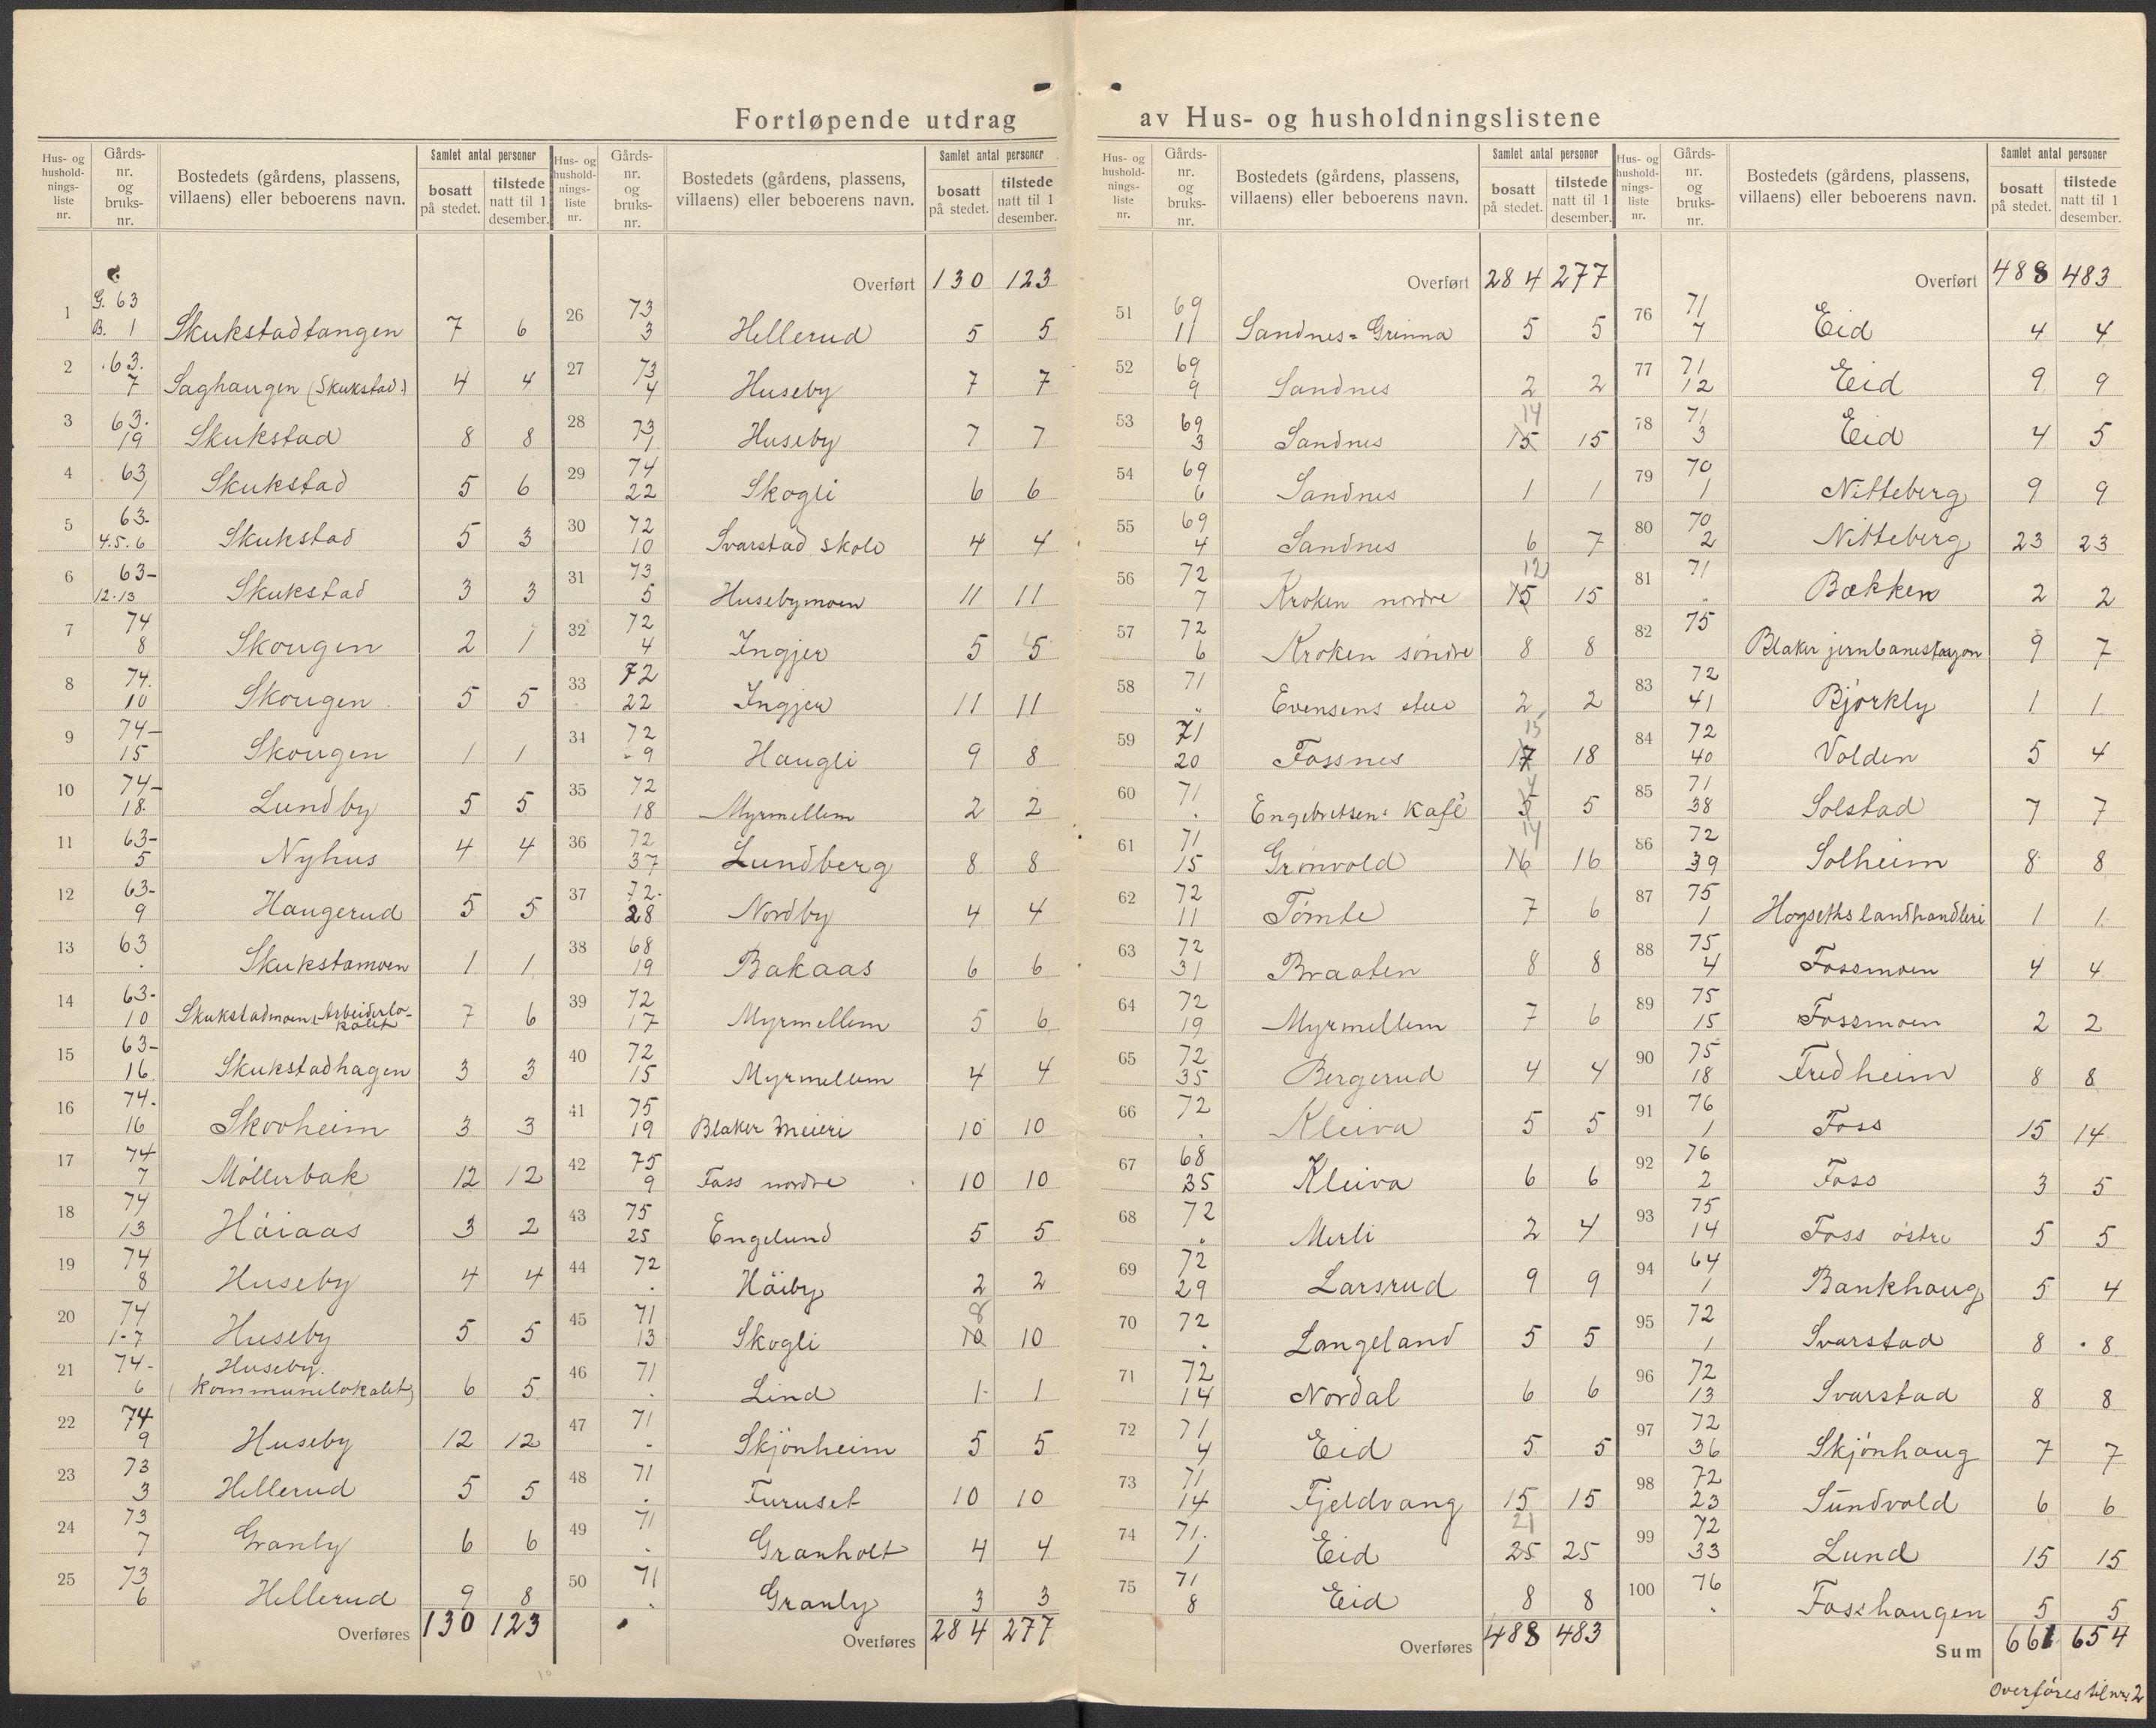 Fortløpende utdrag av Hus- og husholdningslistene
Hus- og husholdnings-liste nr. | Gårds-nr. og bruks-nr. | Bostedets (gårdens, plassens, villaens) eller beboerens navn. | Samlet antal personer | bosatt på stedet. | tilstede natt til 1 desember.
1 G. 63 B. 1 Skukstadtangen 7 6
2 63. 7 Saghaugen (Skukstad.) 4 4
3 63. 19 Skukstad 8 8
4 63 1 Skukstad 5 6
5 63- 4.5.6 Skukstad 5 3
6 63- 12.13 Skukstad 3 3
7 74 8 Skougen 2 1
8 74. 10 Skougen 5 5
9 74- 15 Skougen 1 1
10 74- 18. Lundby 5 5
11 63- 5 Nyhus 4 4
12 63- 9 Haugerud 5 5
13 63 . Skukstamoen 1 1
14 63- 10 Skukstadmoen-Arbeiderlo-kalet 7 6
15 63- 16 Skukstadhagen 3 3
16 74. 16 Skovheim 3 3
17 74 7 Møllerbak 12 12
18 74 13 Høiaas 3 2
19 74 8 Huseby 4 4
20 74 1-7 Huseby 5 5
21 74- 6 Huseby. (Kommunelokalet) 6 5
22 74 9 Huseby 12 12
23 73 3 Hellerud 5 5
24 73 7 Granly 6 6
25 73 6 Hellerud 9 8
Overføres 130 123
Hus- og husholdnings-liste nr. | Gårds-nr. og bruks-nr. | Bostedets (gårdens, plassens, villaens) eller beboerens navn. | Samlet antal personer | bosatt på stedet. | tilstede natt til 1 desember.
Overført 130 123
26 73 3 Hellerud 5 5
27 73 4 Huseby 7 7
28 73 1 Huseby 7 7
29 74 22 Skogli 6 6
30 72 10 Svarstad skole 4 4
31 73 5 Husebymoen 11 11
32 72 4 Ingjer 5 5
33 72 22 Ingjer 11 11
34 72 9 Haugli 9 8
35 72 18 Myrmellem 2 2
36 72 37 Lundberg 8 8
37 72. 28 Nordby 4 4
38 68 19 Bakaas 6 6
39 72 17 Myrmellem 5 6
40 72 15 Myrmellem 4 4
41 75 19 Blaker Meieri 10 10
42 75 9 Foss nordre 10 10
43 75 25 Engelund 5 5
44 72 . Høiby 2 2
45 71 13 Skogli 8 10 10
46 71 . Lind 1 1
47 71 . Skjønheim 5 5
48 71 . Furuset 10 10
49 71 . Granholt 4 4
50 71 . Granly 3 3
Overføres 284 277
Hus- og husholdnings-liste nr. | Gårds-nr. og bruks-nr. | Bostedets (gårdens, plassens, villaens) eller beboerens navn. | Samlet antal personer | bosatt på stedet. | tilstede natt til 1 desember.
Overført 284 277
51 69 11 Sandnes=Grinna 5 5
52 69 9 Sandnes 2 2
53 69 3 Sandnes 14 15 15
54 69 6 Sandnes 1 1
55 69 4 Sandnes 6 7
56 72 7 Kroken nordre 12 15 15
57 72 6 Kroken søndre 8 8
58 71 " Evensens stue 2 2
59 71 20 Fossnes 15 17 18
60 71 . Engebretsens Kafé 4 5 5
61 71 15 Grønvold 14 16 16
62 72 11 Tømte 7 6
63 72 31 Braaten 8 8
64 72 19 Myrmellem 7 6
65 72 35 Bergerud 4 4
66 72 . Kleiva 5 5
67 68 35 Kleiva 6 6
68 72 . Merli 2 4
69 72 29 Larsrud 9 9
70 72 . Langeland 5 5
71 72 14 Nordal 6 6
72 71 4 Eid 5 5
73 71 14 Fjeldvang 15 15
74 71. 1 Eid 21 25 25
75 71 8 Eid 8 8
Overføres 488 483
Hus- og husholdnings-liste nr. | Gårds-nr. og bruks-nr. | Bostedets (gårdens, plassens, villaens) eller beboerens navn. | Samlet antal personer | bosatt på stedet. | tilstede natt til 1 desember.
Overført 488 483
76 71 7 Eid 4 4
77 71 12 Eid 9 9
78 71 3 Eid 4 5
79 70 1 Nitteberg 9 9
80 70 2 Nitteberg 23 23
81 71 . Bækken 2 2
82 75 Blaker jernbanestasjon 9 7
83 72 41 Bjørkly 1 1
84 72 40 Volden 5 4
85 71 38 Solstad 7 7
86 72 39 Solheim 8 8
87 75 1 Hogseths landhandleri 1 1
88 75 4 Fossmoen 4 4
89 75 15 Fossmoen 2 2
90 75 18 Fredheim 8 8
91 76 1 Foss 15 14
92 76 2 Foss 3 5
93 75 14 Foss østre 5 5
94 64 1 Bankhaug 5 4
95 72 1 Svarstad 8 8
96 72 13 Svarstad 8 8
97 72 36 Skjønhaug 7 7
98 72 23 Sundvold 6 6
99 72 33 Lund 15 15
100 76 . Fosshaugen 5 5
Sum 661 654
Overføres til nr. 2